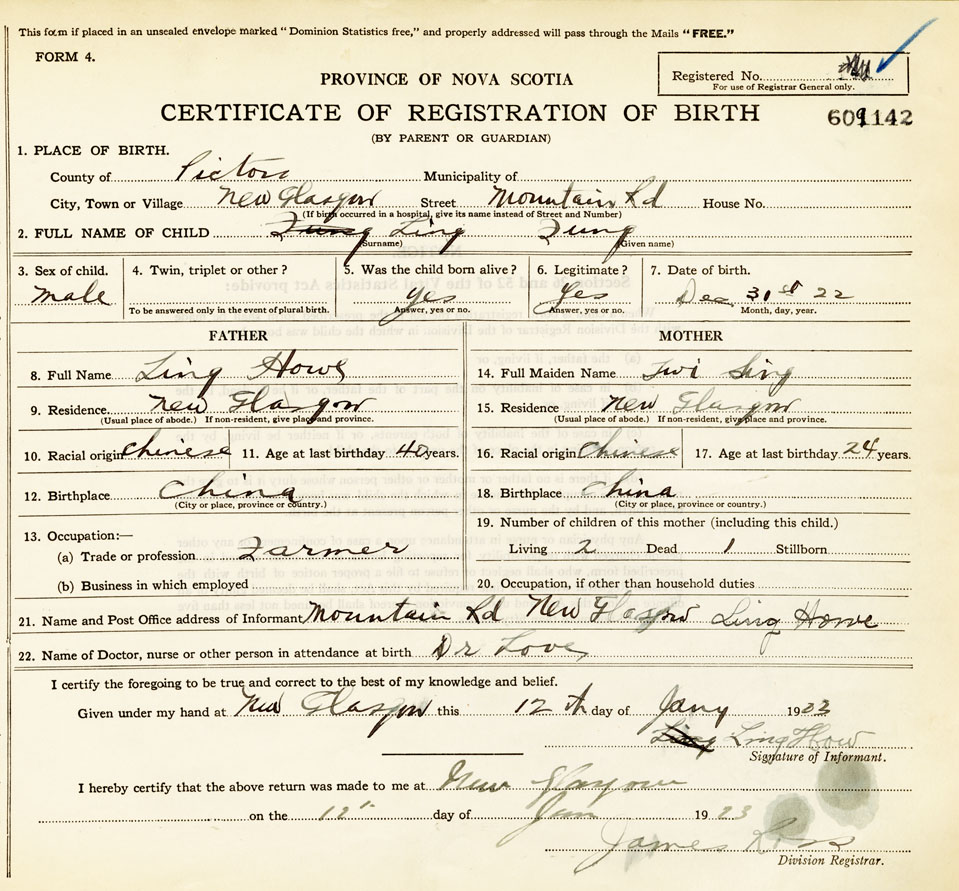 This form if placed in an unsealed envelope marked "Dominion Statistics free," and properly addressed will pass through the Mails "FREE."
FORM 4.
Registered No.
For use of Registrar General only.
PROVINCE OF NOVA SCOTIA
CERTIFICATE OF REGISTRATION OF BIRTH
609142
(BY PARENT OR GUARDIAN)
1. PLACE OF BIRTH.
County of Pictou Municipality of
City, Town or Village New Glasgow Street Mountain Rd House No.
(If birth occurred in a hospital, give its name instead of Street and Number)
2. FULL NAME OF CHILD Ling
(Surname) (Given name)
3. Sex of child. 4. Twin, triplet or other? 5. Was the child born alive? 6. Legitimate? 7. Date of birth.
Male yes Yes Dec 31st 22
To be answered only in the event of plural birth. Answer, yes or no. Answer, yes or no. Month, day, year.
FATHER MOTHER
8. Full Name Ling Howe 14. Full Maiden Name Sing
9. Residence New Glasgow 15. Residence New Glasgow
(Usual place of abode.) If non-resident, give place and province. (Usual place of abode.) If non-resident, give place and province.
10. Racial origin Chinese 11. Age at last birthday 40 years. 16. Racial origin Chinese 17. Age at last birthday 24 years.
12. Birthplace China 18. Birthplace China
(City or place, province or country.) (City or place, province or country.)
19. Number of children of this mother (including this child.)
13. Occupation:—
(a) Trade or profession Farmer Living 2 Dead 1 Stillborn
(b) Business in which employed 20. Occupation, if other than household duties
21. Name and Post Office address of Informant Mountain Rd New Glasgow Ling Howe
22. Name of Doctor, nurse or other person in attendance at birth Dr Love
I certify the foregoing to be true and correct to the best of my knowledge and belief.
Given under my hand at New Glasgow this 12th day of Jany 1923
Ling How
Signature of Informant.
I hereby certify that the above return was made to me at New Glasgow
on the 12" day of Jan 1923
James Ross
Division Registrar.